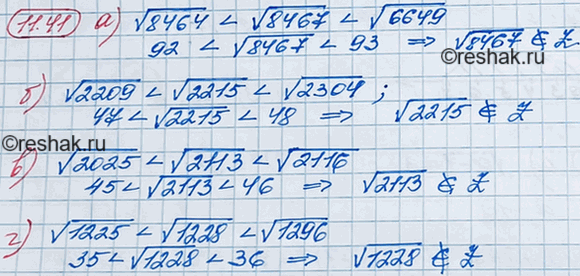 11.41 а) √8464 < √8467 < √6649
92 < √8467 < 93 ⇒ √8467 ∉ Z
©reshak.ru
б) √2209 < √2215 < √2304 ;
47 < √2215 < 48 ⇒ √2215 ∉ Z
©reshak.ru
в) √2025 < √2113 < √2116
45 < √2113 < 46 ⇒ √2113 ∉ Z
г) √1225 < √1228 < √1296
35 < √1228 < 36 ⇒ √1228 ∉ Z
©reshak.ru